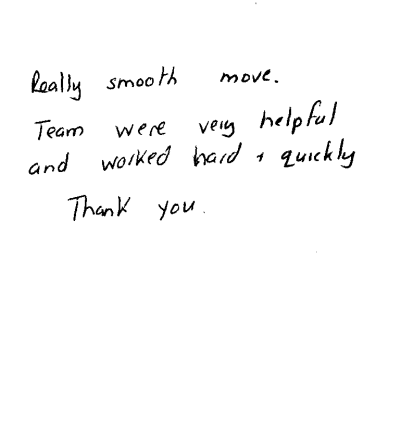 Really smooth move.
Team were very helpful
and worked hard + quickly
Thank you.